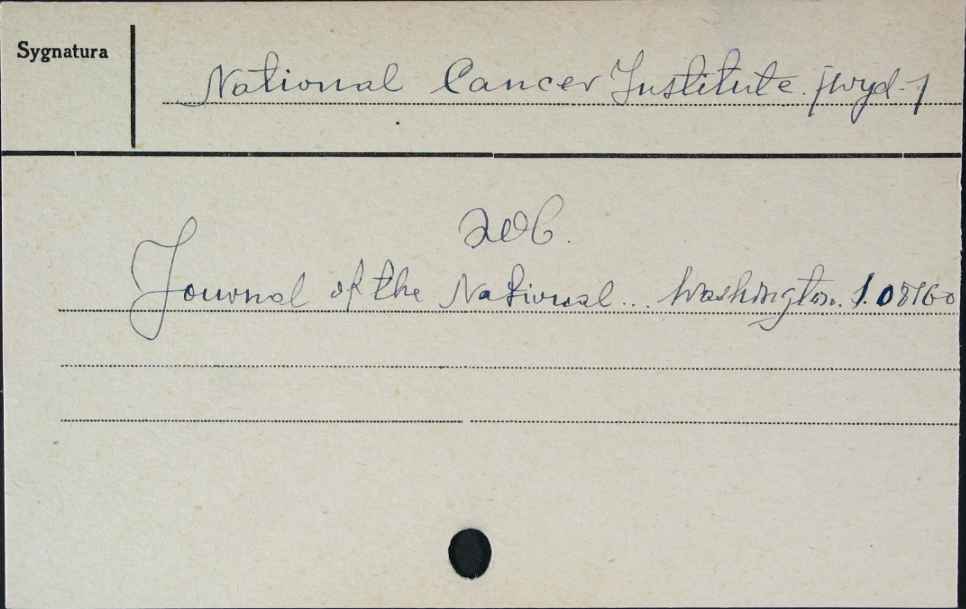 Sygnatura
National Cancer Institute. [wyd.]
zob.
Journal of the National... Washington. 1.08160